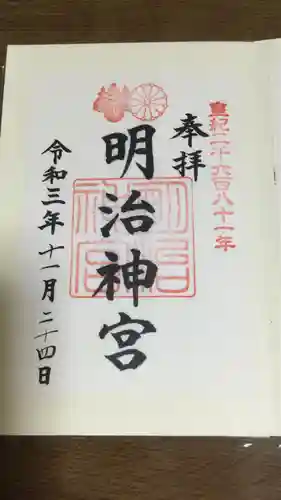 皇紀二千六百八十一年
奉拝
明治神宮
令和三年十一月二十四日